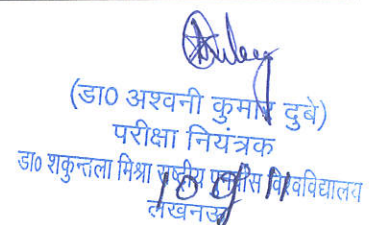 (डा0 अश्वनी कुमार दुबे)
परीक्षा नियंत्रक
डा0 शकुन्तला मिश्रा राष्ट्रीय विश्वविद्यालय
लखनऊ